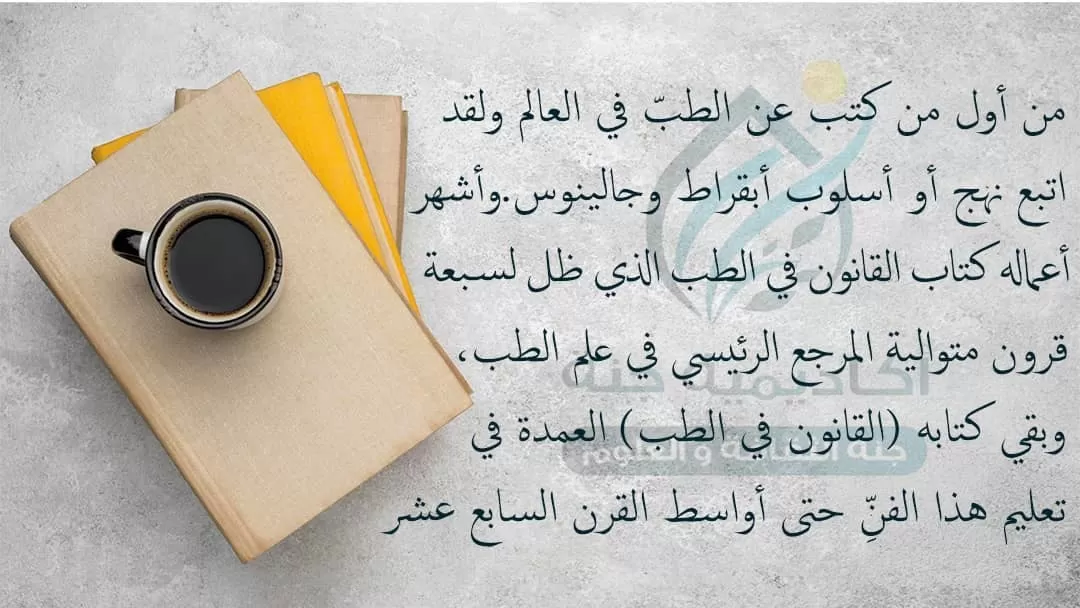 من أول من كتب عن الطبّ في العالم ولقد
اتبع نهج أو أسلوب أبقراط وجالينوس.وأشهر
أعماله كتاب القانون في الطب الذي ظل لسبعة
قرون متوالية المرجع الرئيسي في علم الطب،
وبقي كتابه (القانون في الطب) العمدة في
تعليم هذا الفنِّ حتى أواسط القرن السابع عشر
أكاديمية جنة